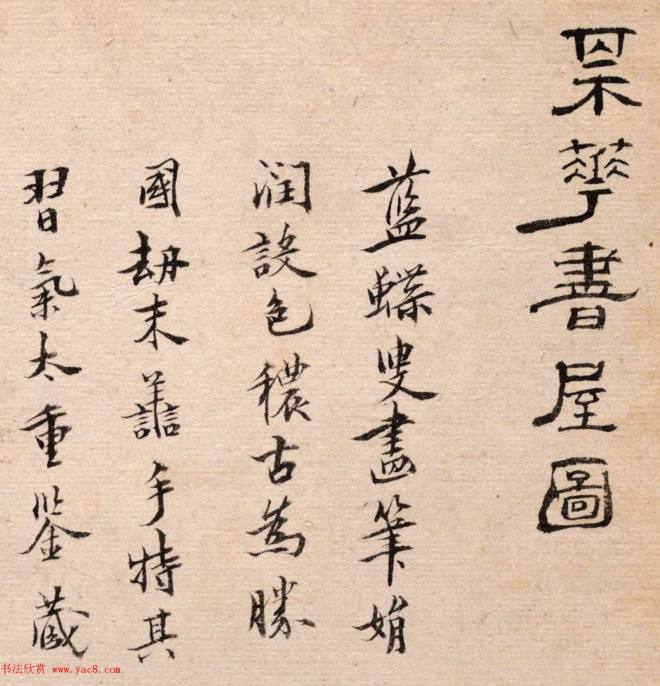 華書屋圖
藍蝶叟畫筆娟
潤設色穠古為勝
國劫末譱手特其
習氣太重鉴藏
书法欣赏 www.yac8.com